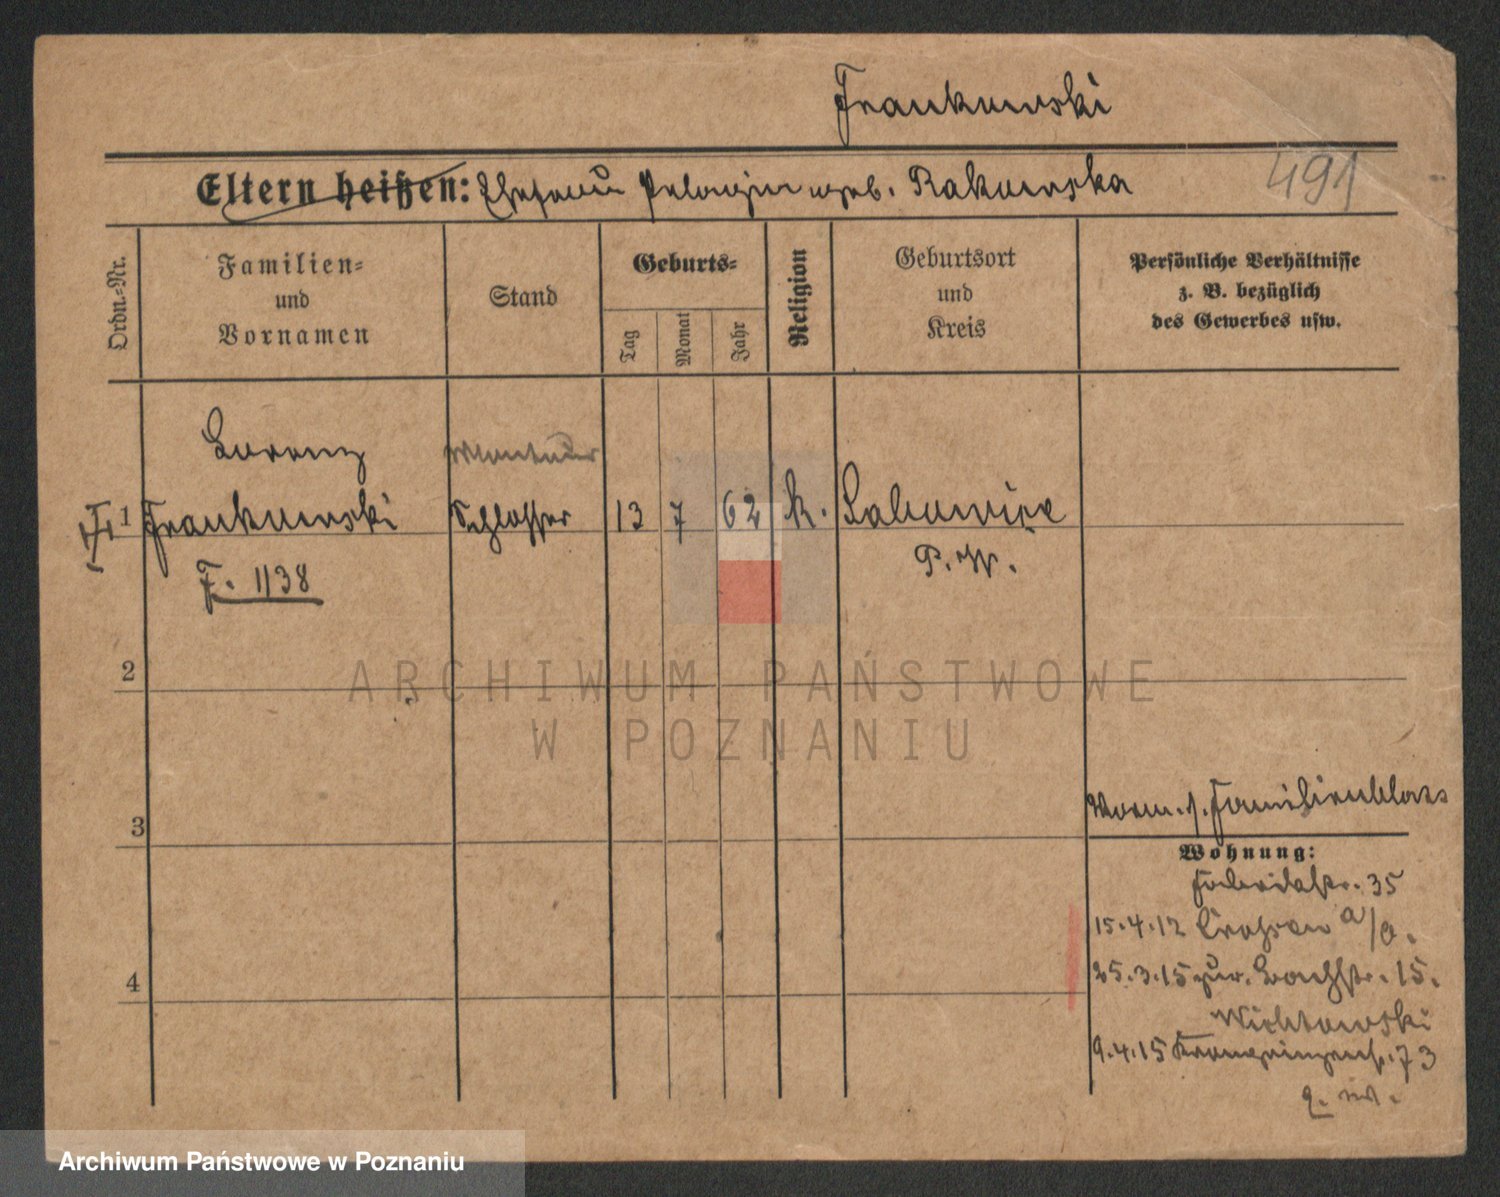 Frankowski
Eltern heißen: Ehefrau Pelagia geb. Rakowska
491
Ordn.-Nr.
Familien-
und
Vornamen
Stand
Geburts-
Tag
Monat
Jahr
Religion
Geburtsort
und
Kreis
Persönliche Verhältnisse
z. B. bezüglich
des Gewerbes usw.
Lorenz
Monteur
1 Frankowski Schlosser 13 7 62 k.
P. W.
F. 1138
2
3
4
Vorm. s. Familienblatt
Wohnung:
35
15.4.12 Crossen a/O.
25.3.15 zur. Bachstr. 15.
9.4.15 Kronprinzenstr. 73
ARCHIWUM PAŃSTWOWE
W POZNANIU
Archiwum Państwowe w Poznaniu